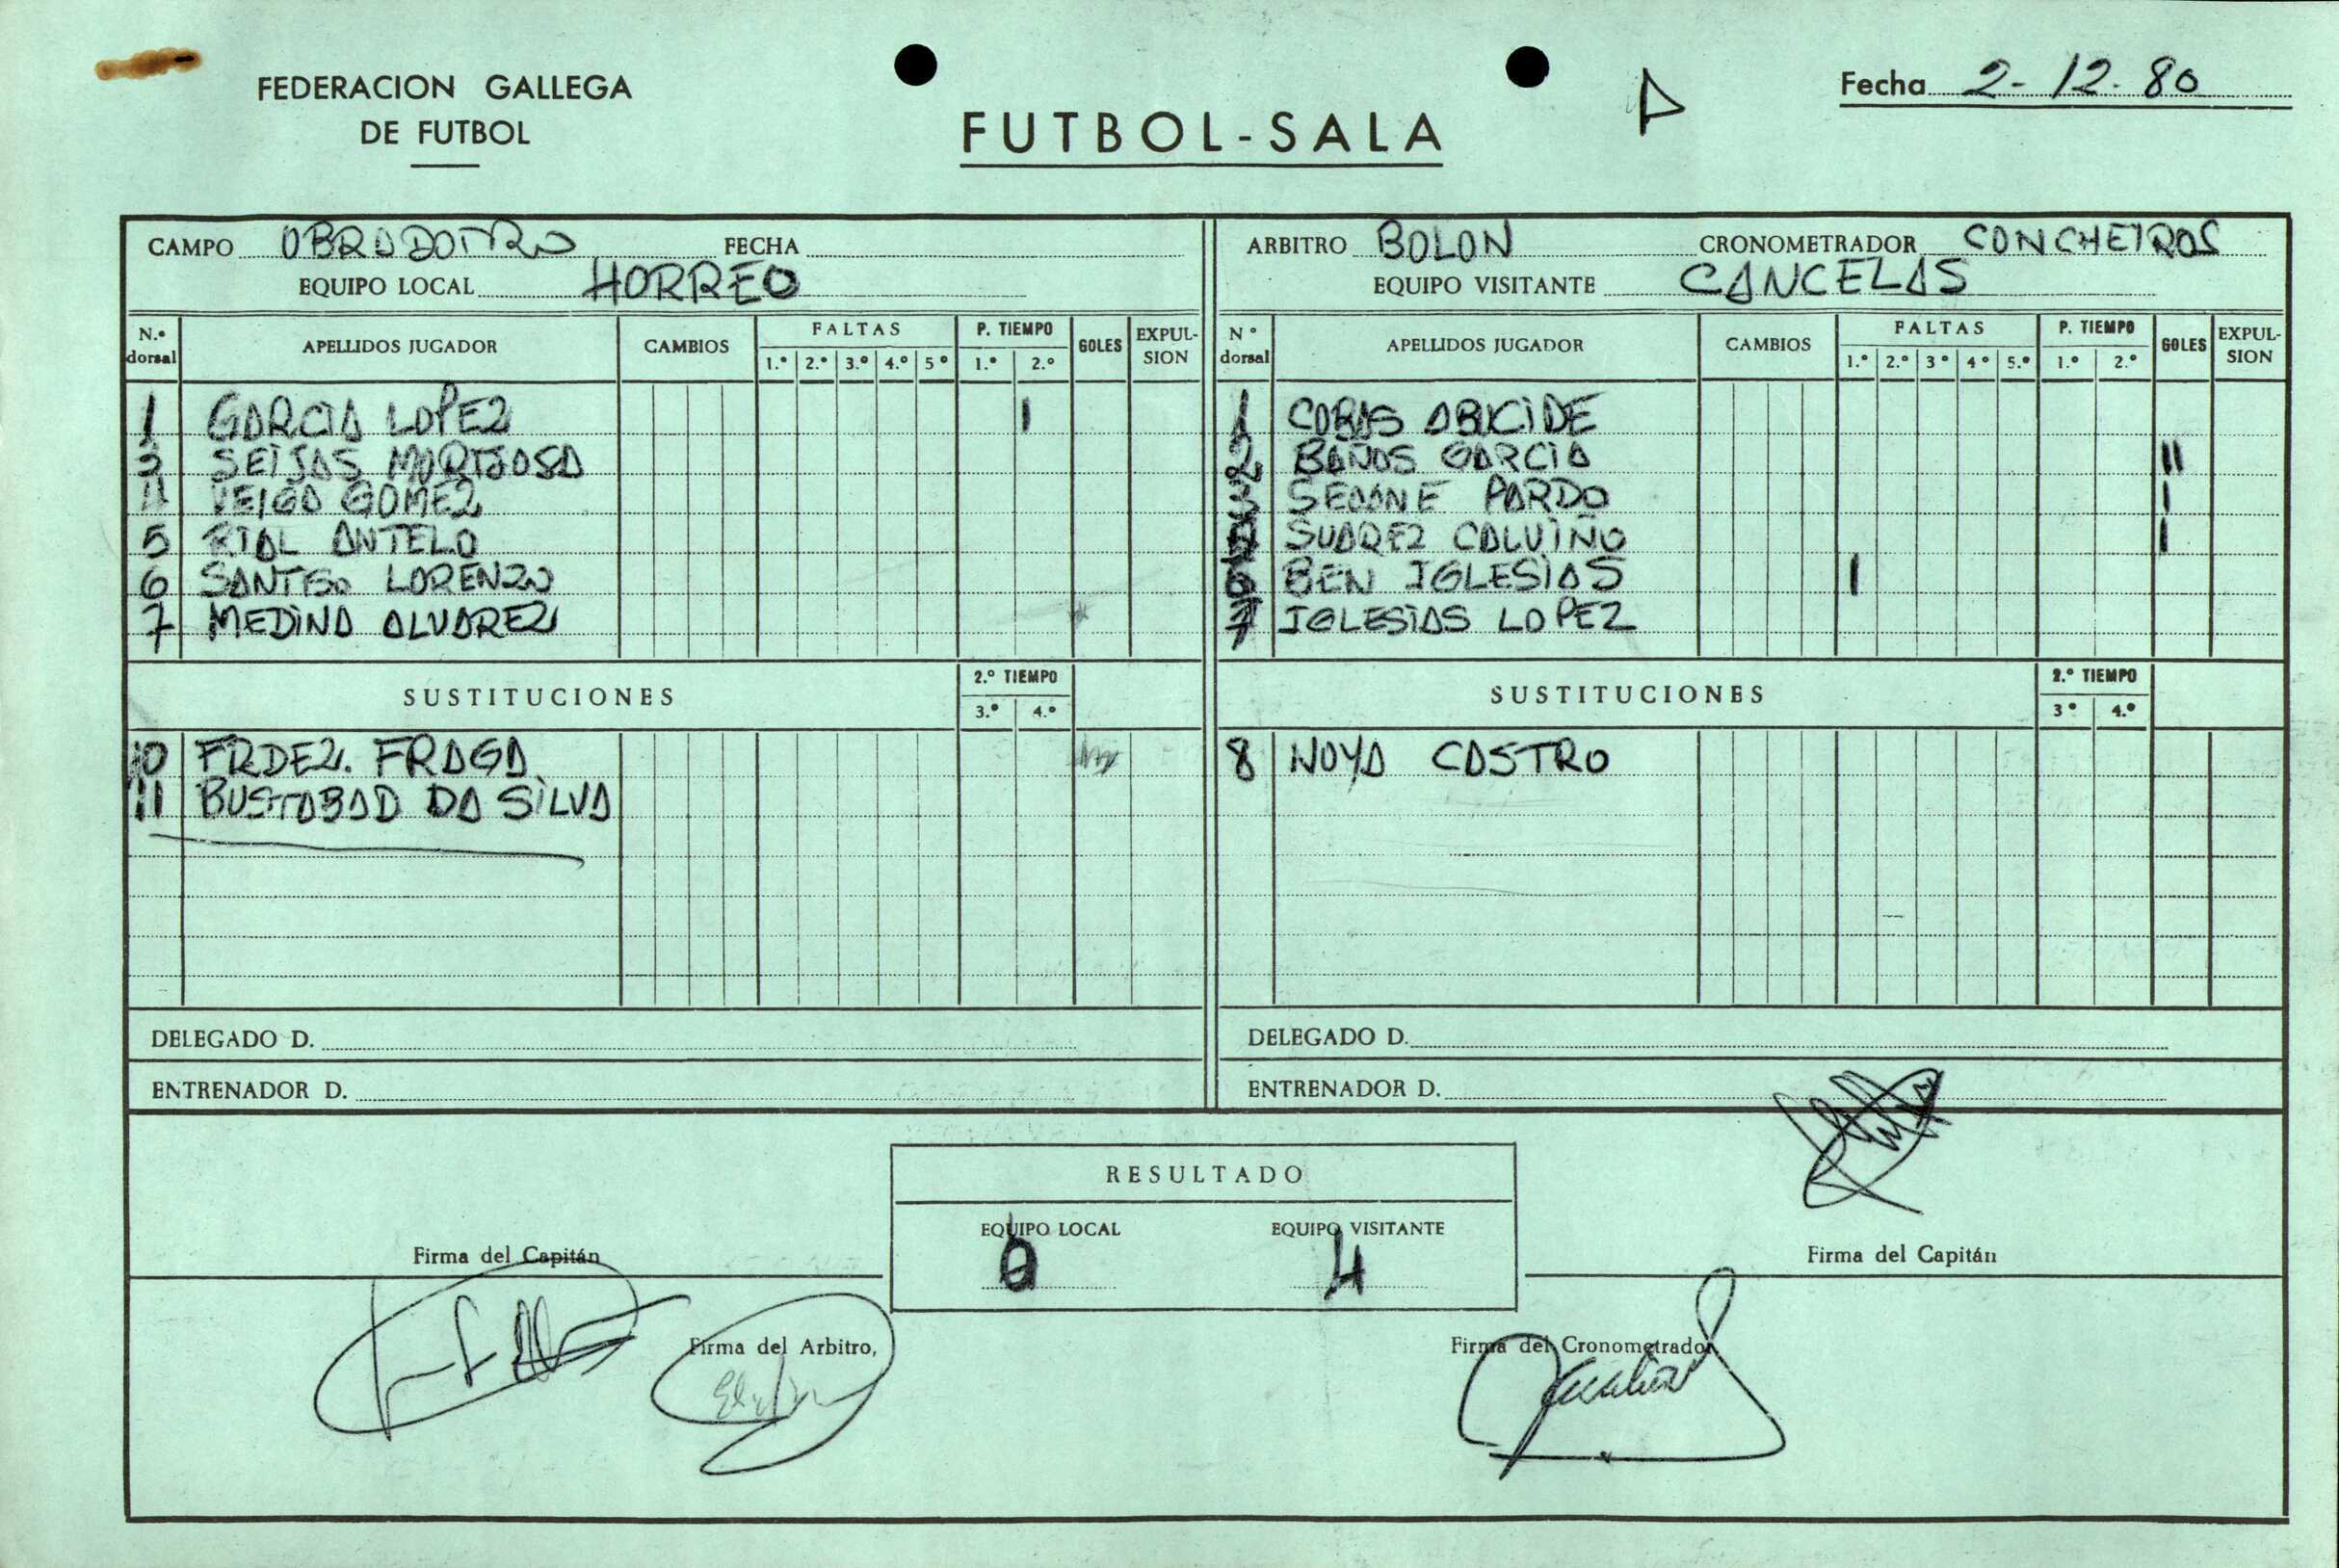 FEDERACION GALLEGA
DE FUTBOL
FUTBOL-SALA
Fecha 2-12-80
CAMPO OBRADOIRO FECHA
EQUIPO LOCAL HORREO
N.º dorsal APELLIDOS JUGADOR CAMBIOS FALTAS 1.º 2.º 3.º 4.º 5º P. TIEMPO 1.º 2.º GOLES EXPULSION
1 GARCIA LOPEZ 1
3 SEIJAS
4 VEIGA GOMEZ
5 RIAL ANTELO
6 SANTISO LORENZO
7 MEDINA ALVAREZ
SUSTITUCIONES 2.º TIEMPO 3.º 4.º
10 FRDEZ. FRAGA
11 BUSTABAD DA SILVA
DELEGADO D.
ENTRENADOR D.
ARBITRO BOLON CRONOMETRADOR CONCHEIROS
EQUIPO VISITANTE CANCELAS
Nº dorsal APELLIDOS JUGADOR CAMBIOS FALTAS 1.º 2.º 3º 4º 5.º P. TIEMPO 1.º 2.º GOLES EXPULSION
1 COBAS
2 BAÑOS GARCIA 11
3 SEOANE PARDO 1
SUAREZ CALVIÑO 1
6 BEN IGLESIAS 1
7 IGLESIAS LOPEZ
SUSTITUCIONES 2.º TIEMPO 3º 4.º
8 NOYA CASTRO
DELEGADO D.
ENTRENADOR D.
RESULTADO
EQUIPO LOCAL EQUIPO VISITANTE
0 4
Firma del Capitán
Firma del Capitán
Firma del Arbitro,
Firma del Cronometrador